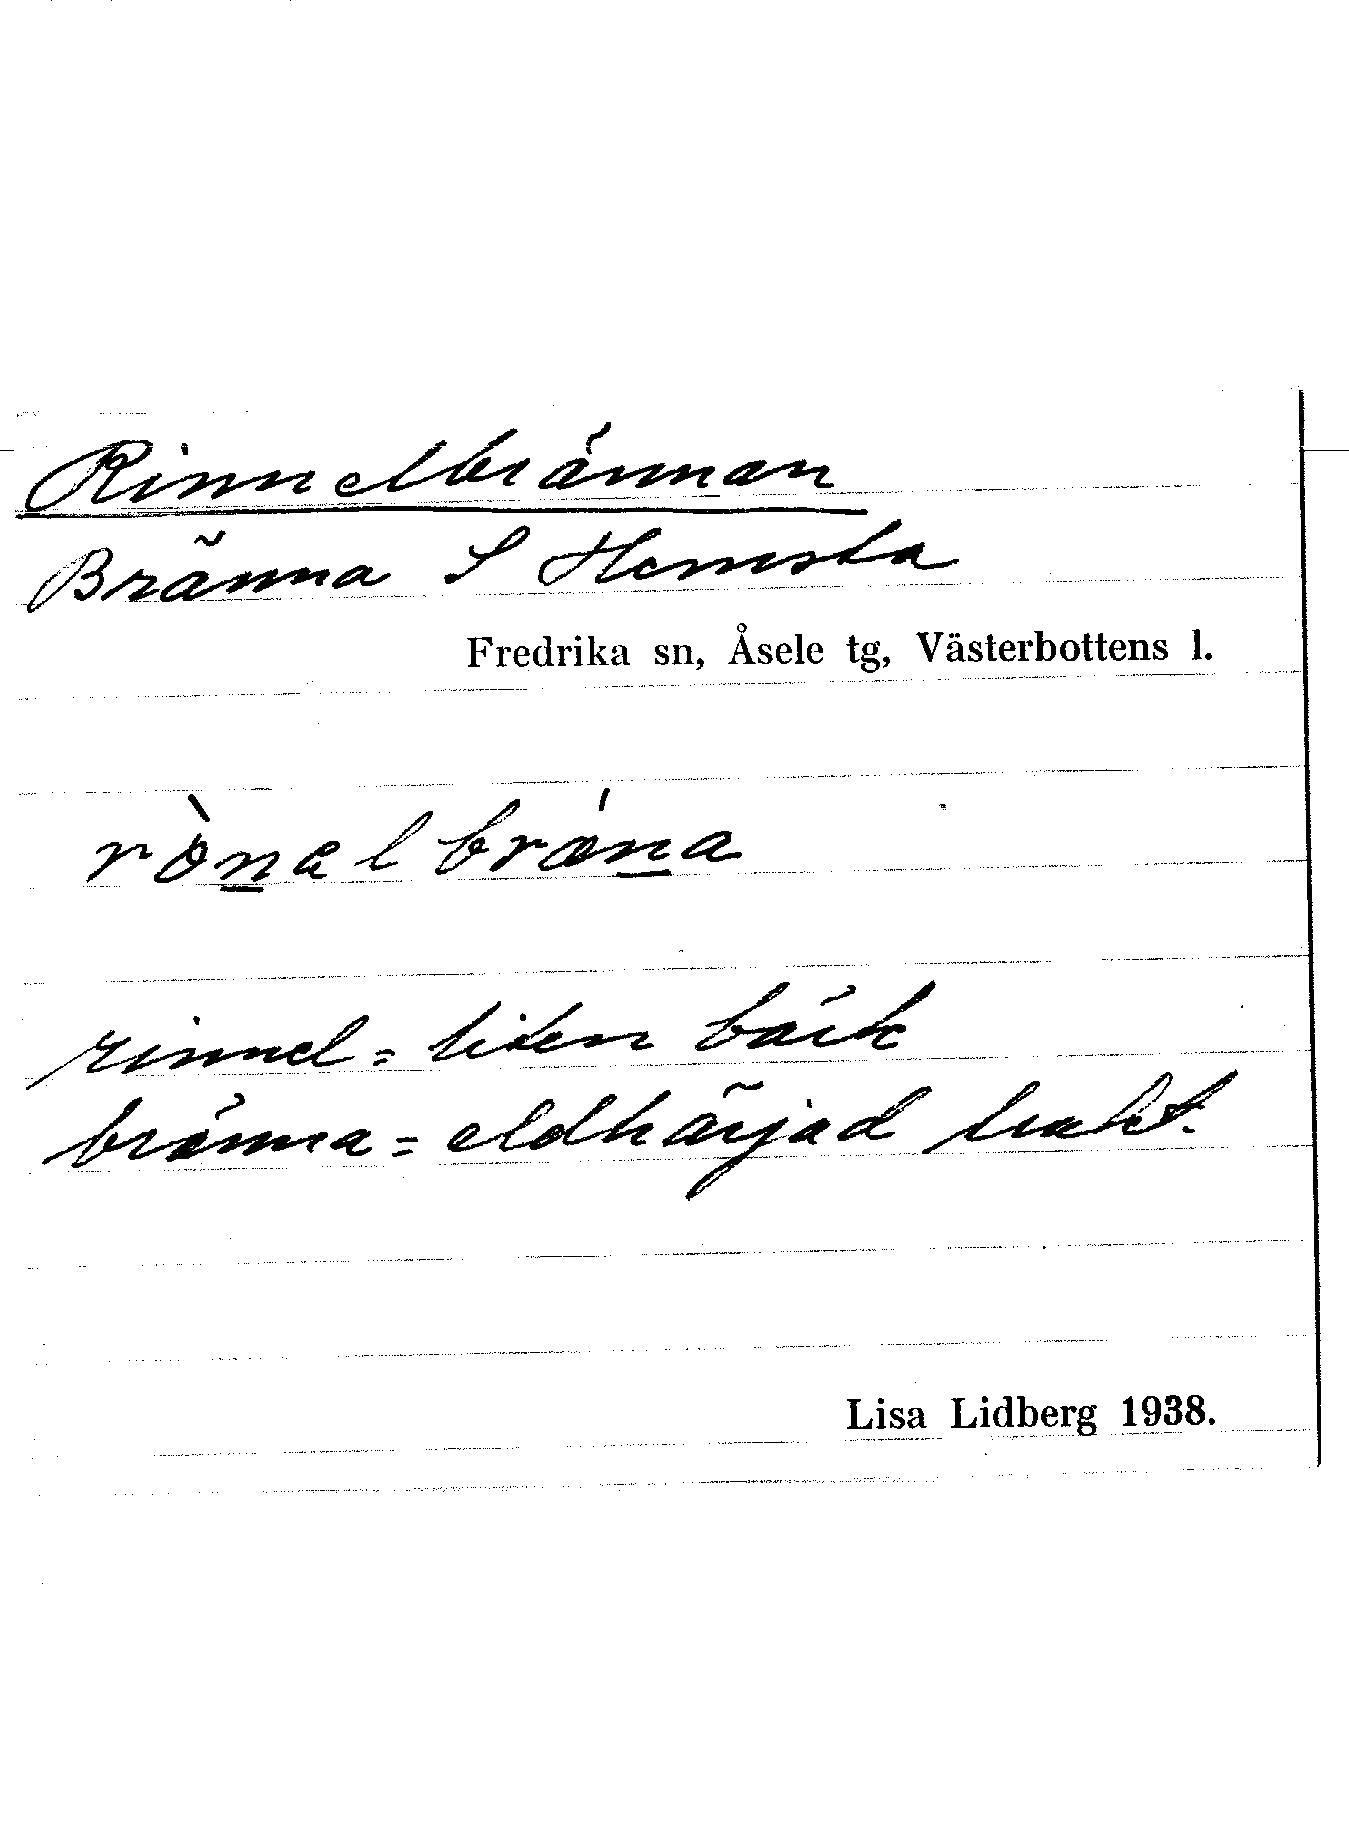 Rinnelbrännan
Bränna S Hemsta
Fredrika sn, Åsele tg, Västerbottens l.
rinnel = liten bäck
bränna = eldhärjad trakt.
Lisa Lidberg 1938.